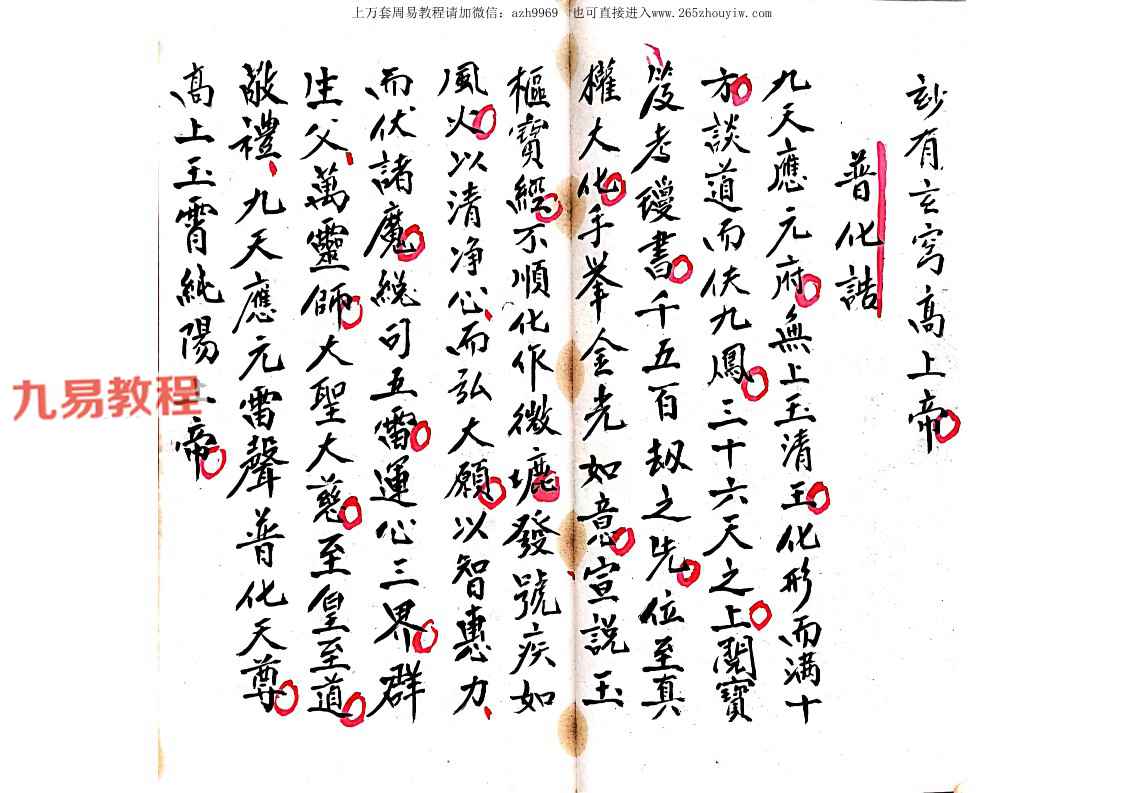 上万套周易教程请加微信：azh9969　也可直接进入www.265zhouyiw.com
玅有玄穹高上帝
普化誥
九天應元府無上玉清王化形而满十
方談道而伏九鳳三十六天之上閱寶
笈考瓊書千五百劫之先位至真
權大化手举金光如意宣説玉
樞寶經不順化作微塵發號疾如
風火以清净心而弘大願以智惠力
而伏諸魔総司五雷運心三界群
生父萬靈師大聖大慈至皇至道
敬禮九天應元雷聲普化天尊
高上玉霄純陽帝
九易教程